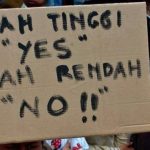 AH TINGGI
"YES"
AH RENDAH
"NO!!"